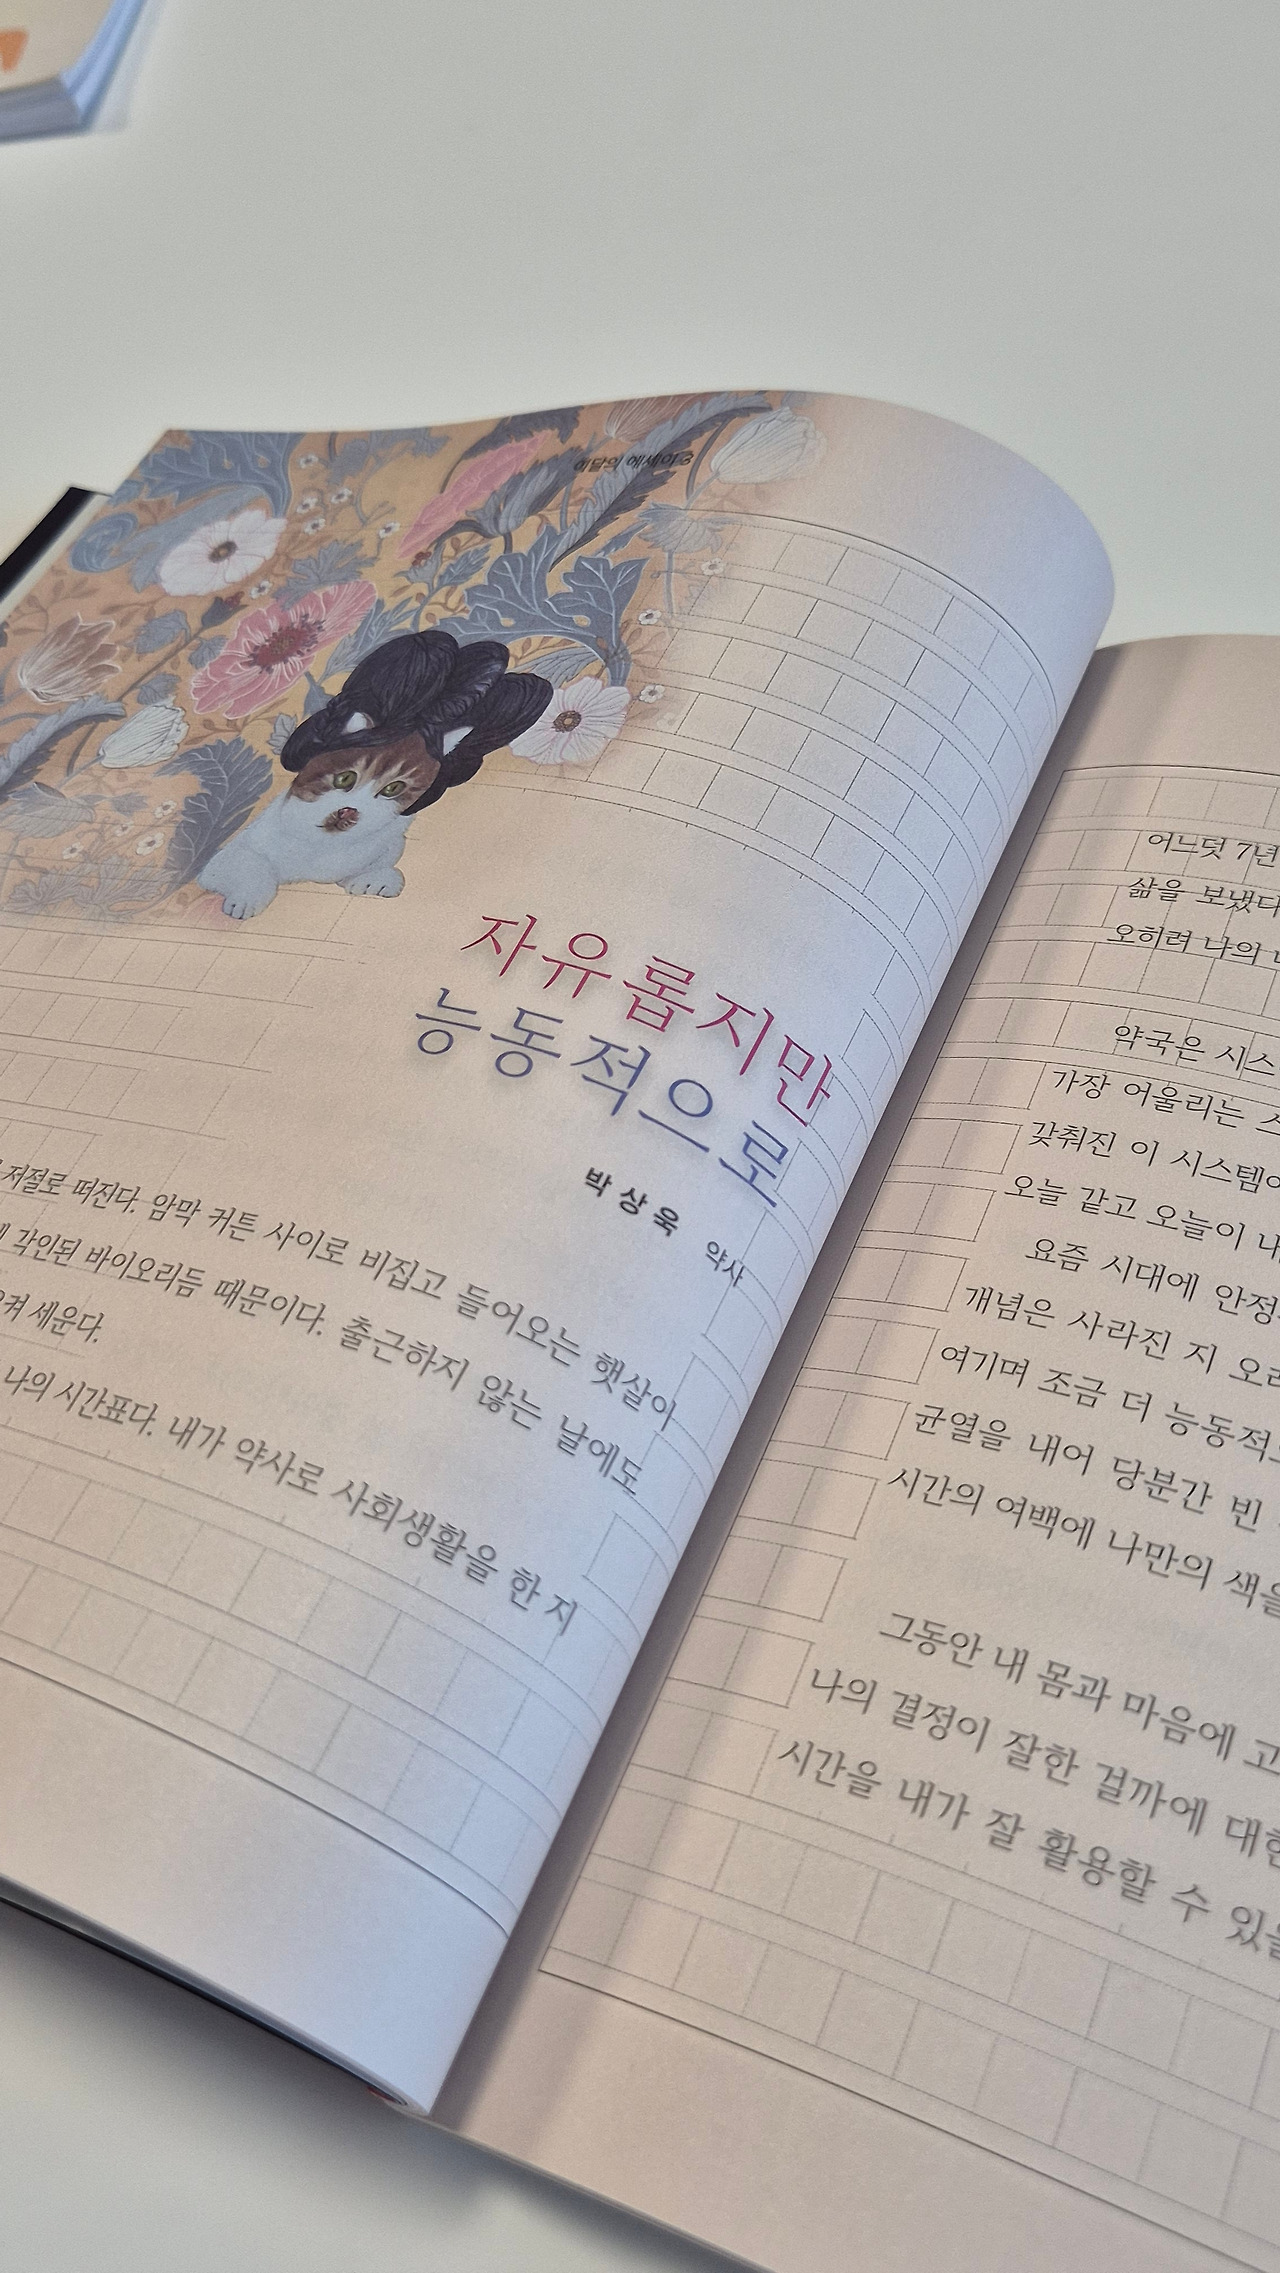 이달의 에세이 3
자유롭지만
능동적으로
박상욱 약사
저절로 떠진다. 암막 커튼 사이로 비집고 들어오는 햇살이
각인된 바이오리듬 때문이다. 출근하지 않는 날에도
세운다.
나의 시간표다. 내가 약사로 사회생활을 한 지
어느덧 7년
삶을 보냈다
오히려 나의
약국은
가장 어울리는
갖춰진 이
오늘 같고 오늘이
요즘 시대에
개념은 사라진 지
여기며 조금 더
균열을 내어 당분간 빈
시간의 여백에 나만의
그동안 내 몸과 마음에
나의 결정이 잘한 걸까에
시간을 내가 잘 활용할 수